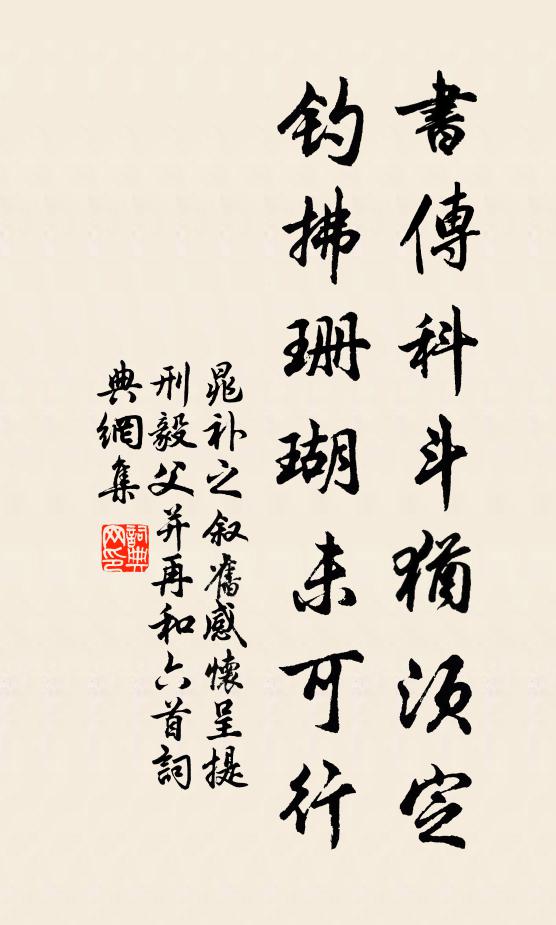 書傳科斗猶須定
釣拂珊瑚未可行
晁补之叙舊感懷呈提
刑毅父并再和六首詞
典網集
詞典
网印